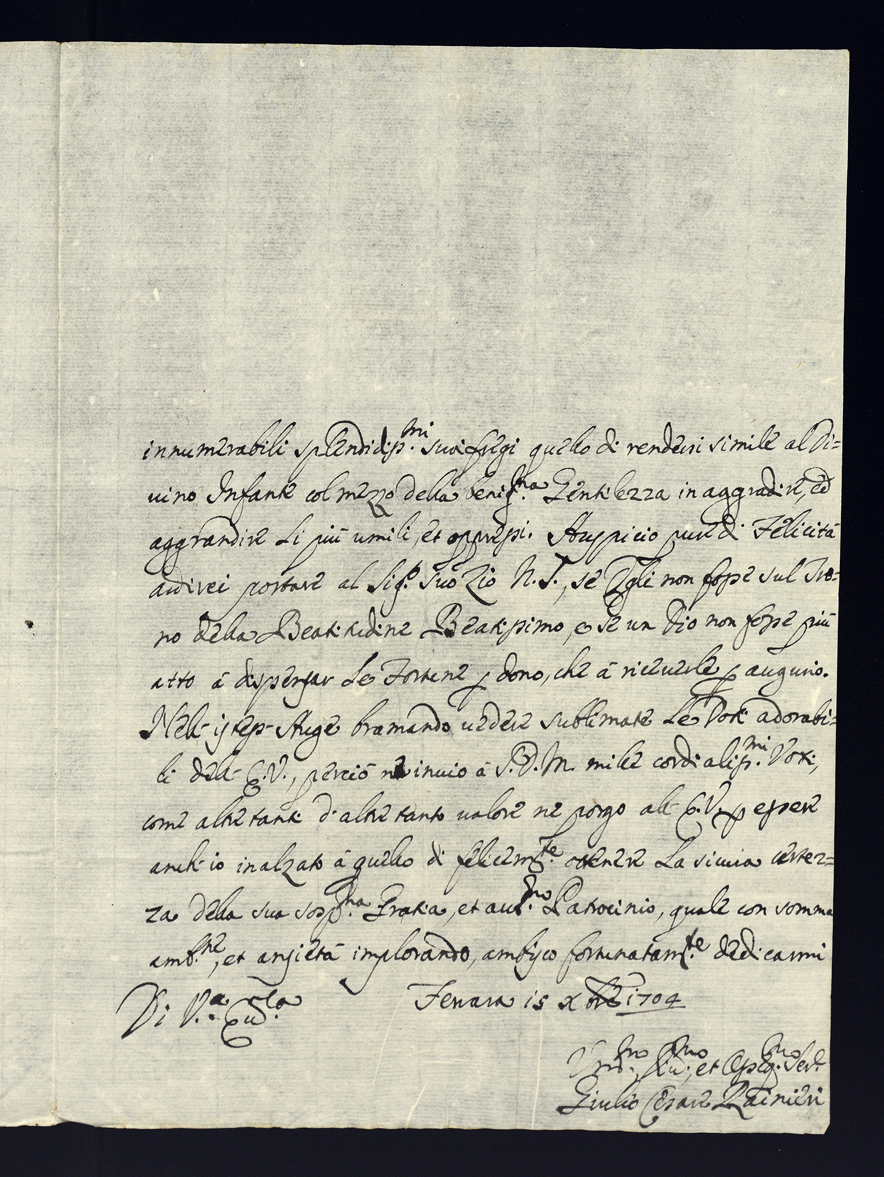 innumerabili splendidiss.mi suoi fregi quello di rendersi simile al Di=
uino Infante col mezzo della benig.na Gentilezza in aggradire, ed
aggrandire li più umili, et oppressi. Auspicio pure di Felicità
ardirei portare al Sig.r suo Zio N. S., se Egli non fosse sul Tro=
no della Beatitudine Beatissimo, e se un Dio non fosse più
atto à dispensar le Fortune p dono, che à riceuerle p augurio.
Nell' istess' Auge bramando uedere sublimate le Doti adorabi=
li dell' E. V., perciò ne inuio à S. D. M. mille cordialiss.mi Voti,
come altretanti d' altretanto ualore ne porgo all' E. V. p essere
anch' io inalzato à quello di felicem.te ottenere la sicura certez=
za della sua sosp.ma Grazia, et aut.mo Patrocinio, quale con somma
amb.ne, et ansietà implorando, ambisco fortunatam.te dedicarmi
Di V.a Ecc.za Ferrara 15 Xbre 1704
Um.mo Diu.mo, et Osseq.mo Ser.e
Giulio Cesare Rainieri